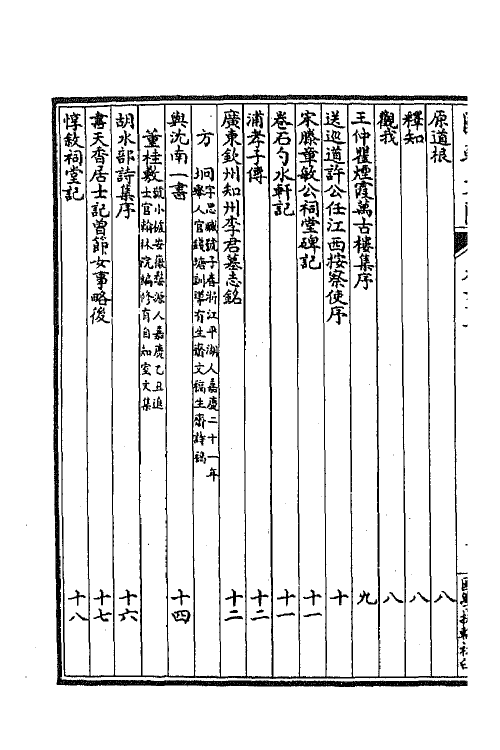 原道根 八
釋知 八
觀我 八
王仲瞿煙霞萬古樓集序 九
送巡道許公任江西按察使序 十
宋滕章敏公祠堂碑記 十一
卷石勺水軒記 十一
浦孝子傳 十二
廣東欽州知州李君墓志銘 十二
方坰字思臧號子春浙江平湖人嘉慶二十一年舉人官錢塘訓導有生齋文稿生齋詩稿
與沈南一書 十四
董桂敷號小槎安徽婺源人嘉慶乙丑進士官翰林院編修有自知室文集
胡水部詩集序 十六
書天香居士記曾節女事略後 十七
惇敘祠堂記 十八